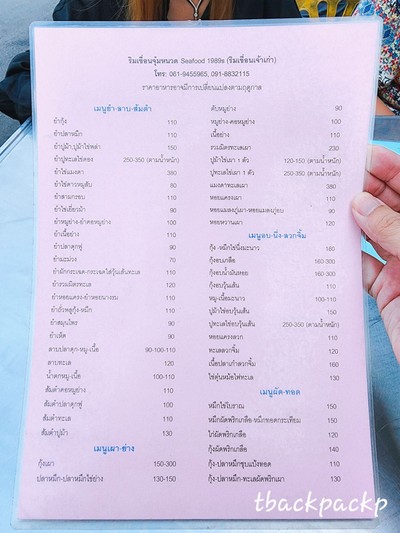 ริมเขื่อนจุ่มหนวด Seafood 1989s (ริมเขื่อนเจ้าเก่า)
โทร: 061-9455965, 091-8832115
ราคาอาหารอาจมีการเปลี่ยนแปลงตามฤดูกาล
เมนูยำ-ลาบ-ส้มตำ
ยำกุ้ง 110
ยำปลาหมึก 110
ยำปูม้า-ปูม้าไข่พล่า 150
ยำปูทะเลไข่ดอง 250-350 (ตามน้ำหนัก)
ยำไข่แมงดา 380
ยำไข่ดาวหมูสับ 90
ยำสามกรอบ 110
ยำไข่เยี่ยวม้า 90
ยำหมูย่าง-ยำคอหมูย่าง 100
ยำเนื้อย่าง 110
ยำปลาดุกฟู 90
ยำมะม่วง 70
ยำผักกระเฉด-กระเฉดไต้วุ้นเส้นทะเล 110
ยำรวมมิตรทะเล 120
ยำหอยแครง-ยำหอยนางรม 110
ยำถั่วพลูกุ้ง-หมึก 110
ยำสมุนไพร 90
ยำเห็ด 90
ลาบปลาดุก-หมู-เนื้อ 90-100-110
ลาบทะเล 120
น้ำตกหมู-เนื้อ 100-110
ส้มตำคอหมูย่าง 110
ส้มตำปลาดุกฟู 100
ส้มตำทะเล 110
ส้มตำปูม้า 130
เมนูเผา-ย่าง
กุ้งเผา 150-300
ปลาหมึก-ปลาหมึกไข่ย่าง 130-150
ตับหมูย่าง 90
หมูย่าง-คอหมูย่าง 100
เนื้อย่าง 110
รวมมิตรทะเลเผา 230
ปูม้าไข่เผา 1 ตัว 120-150 (ตามน้ำหนัก)
ปูทะเลไข่เผา 1 ตัว 250-350 (ตามน้ำหนัก)
แมงดาทะเลเผา 380
หอยแครงเผา 110
หอยแมลงภู่เผา-หอยแมลงภู่อบ 90
หอยหวานเผา 120
เมนูอบ-นึ่ง-ลวกจิ้ม
กุ้ง -หมึกไข่นึ่งมะนาว 160
กุ้งอบเกลือ 160-300
กุ้งอบน้ำมันหอย 160-300
กุ้งอบวุ้นเส้น 110
หมู-เนื้อมะนาว 100-110
ปูม้าไข่อบวุ้นเส้น 150
ปูทะเลไข่อบวุ้นเส้น 250-350 (ตามน้ำหนัก)
หอยแครงลวก 110
ทะเลลวกจิ้ม 120
เนื้อปลาเก๋าลวกจิ้ม 160
ไข่ตุ๋นหม้อไฟทะเล 130
เมนูผัด-ทอด
หมึกไข่โบราณ 160
หมึกผัดพริกเกลือ-หมึกทอดกระเทียม 150
ไก่ผัดพริกเกลือ 120
กุ้งผัดพริกเกลือ 140
กุ้ง-ปลาหมึกชุบแป้งทอด 110
กุ้ง-ปลาหมึก-ทะเลผัดพริกเผา 130
tbackpackp